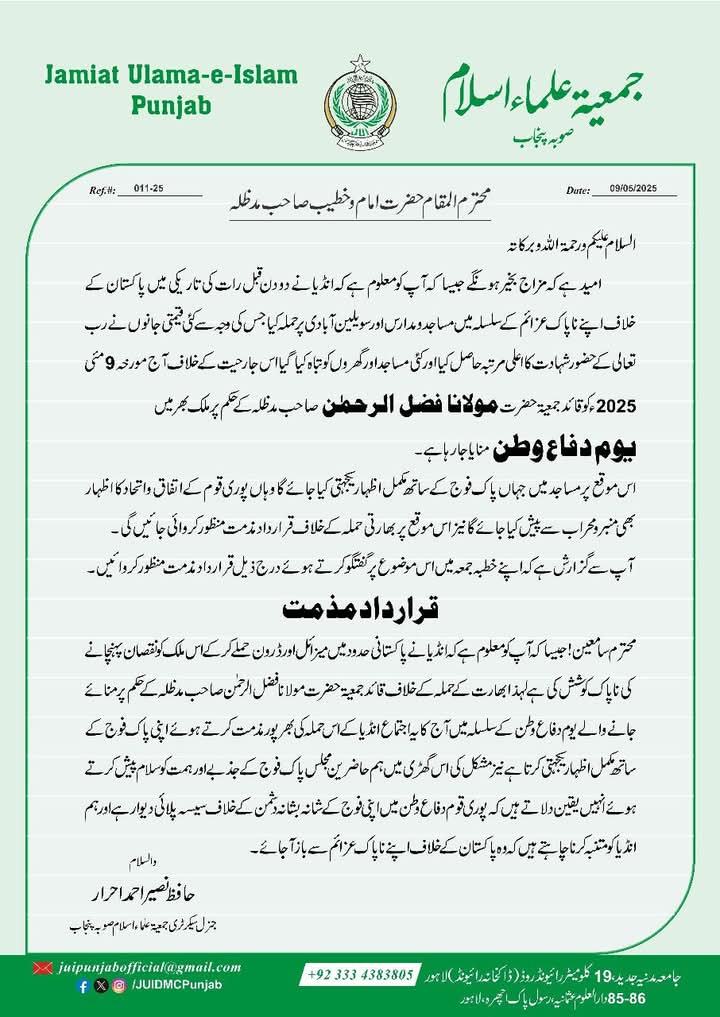 Jamiat Ulama-e-Islam
Punjab
جمعیۃ علماء اسلام
صوبہ پنجاب
Ref.#: 011-25
Date: 09/05/2025
محترم المقام حضرت امام و خطیب صاحب مدظلہ
السلام علیکم ورحمۃ اللہ وبرکاتہ
امید ہے کہ مزاج بخیر ہونگے جیسا کہ آپ کو معلوم ہے کہ انڈیا نے دو دن قبل رات کی تاریکی میں پاکستان کے
خلاف اپنے ناپاک عزائم کے سلسلہ میں مساجد و مدارس اور سویلین آبادی پر حملہ کیا جس کی وجہ سے کئی قیمتی جانوں نے رب
تعالی کے حضور شہادت کا اعلی مرتبہ حاصل کیا اور کئی مساجد اور گھروں کو تباہ کیا گیا اس جارحیت کے خلاف آج مورخہ 9 مئی
2025ء کو قائد جمعیۃ حضرت مولانا فضل الرحمٰن صاحب مدظلہ کے حکم پر ملک بھر میں
یوم دفاع وطن منایا جا رہا ہے۔
اس موقع پر مساجد میں جہاں پاک فوج کے ساتھ مکمل اظہار یکجہتی کیا جائے گا وہاں پوری قوم کے اتفاق و اتحاد کا اظہار
بھی منبر و محراب سے پیش کیا جائے گا نیز اس موقع پر بھارتی حملہ کے خلاف قرارداد مذمت منظور کروائی جائیں گی۔
آپ سے گزارش ہے کہ اپنے خطبہ جمعہ میں اس موضوع پر گفتگو کرتے ہوئے درج ذیل قرارداد مذمت منظور کروائیں۔
قرارداد مذمت
محترم سامعین! جیسا کہ آپ کو معلوم ہے کہ انڈیا نے پاکستانی حدود میں میزائل اور ڈرون حملے کر کے اس ملک کو نقصان پہنچانے
کی ناپاک کوشش کی ہے لہذا بھارت کے حملہ کے خلاف قائد جمعیۃ حضرت مولانا فضل الرحمٰن صاحب مدظلہ کے حکم پر منائے
جانے والے یوم دفاع وطن کے سلسلہ میں آج کا یہ اجتماع انڈیا کے اس حملہ کی بھرپور مذمت کرتے ہوئے اپنی پاک فوج کے
ساتھ مکمل اظہار یکجہتی کرتا ہے نیز مشکل کی اس گھڑی میں ہم حاضرین مجلس پاک فوج کے جذبے اور ہمت کو سلام پیش کرتے
ہوئے انہیں یقین دلاتے ہیں کہ پوری قوم دفاع وطن میں اپنی فوج کے شانہ بشانہ دشمن کے خلاف سیسہ پلائی دیوار ہے اور ہم
انڈیا کو متنبہ کرنا چاہتے ہیں کہ وہ پاکستان کے خلاف اپنے ناپاک عزائم سے باز آجائے۔
والسلام
حافظ نصیر احمد احرار
جنرل سیکرٹری جمعیۃ علماء اسلام صوبہ پنجاب
juipunjabofficial@gmail.com
/JUIDMCPunjab
+92 333 4383805
جامعہ مدنیہ جدید، 19 کلومیٹر رائیونڈ روڈ (ڈاکخانہ رائیونڈ) لاہور
85-86 دارالعلوم عثمانیہ، رسول پارک اچھرہ، لاہور